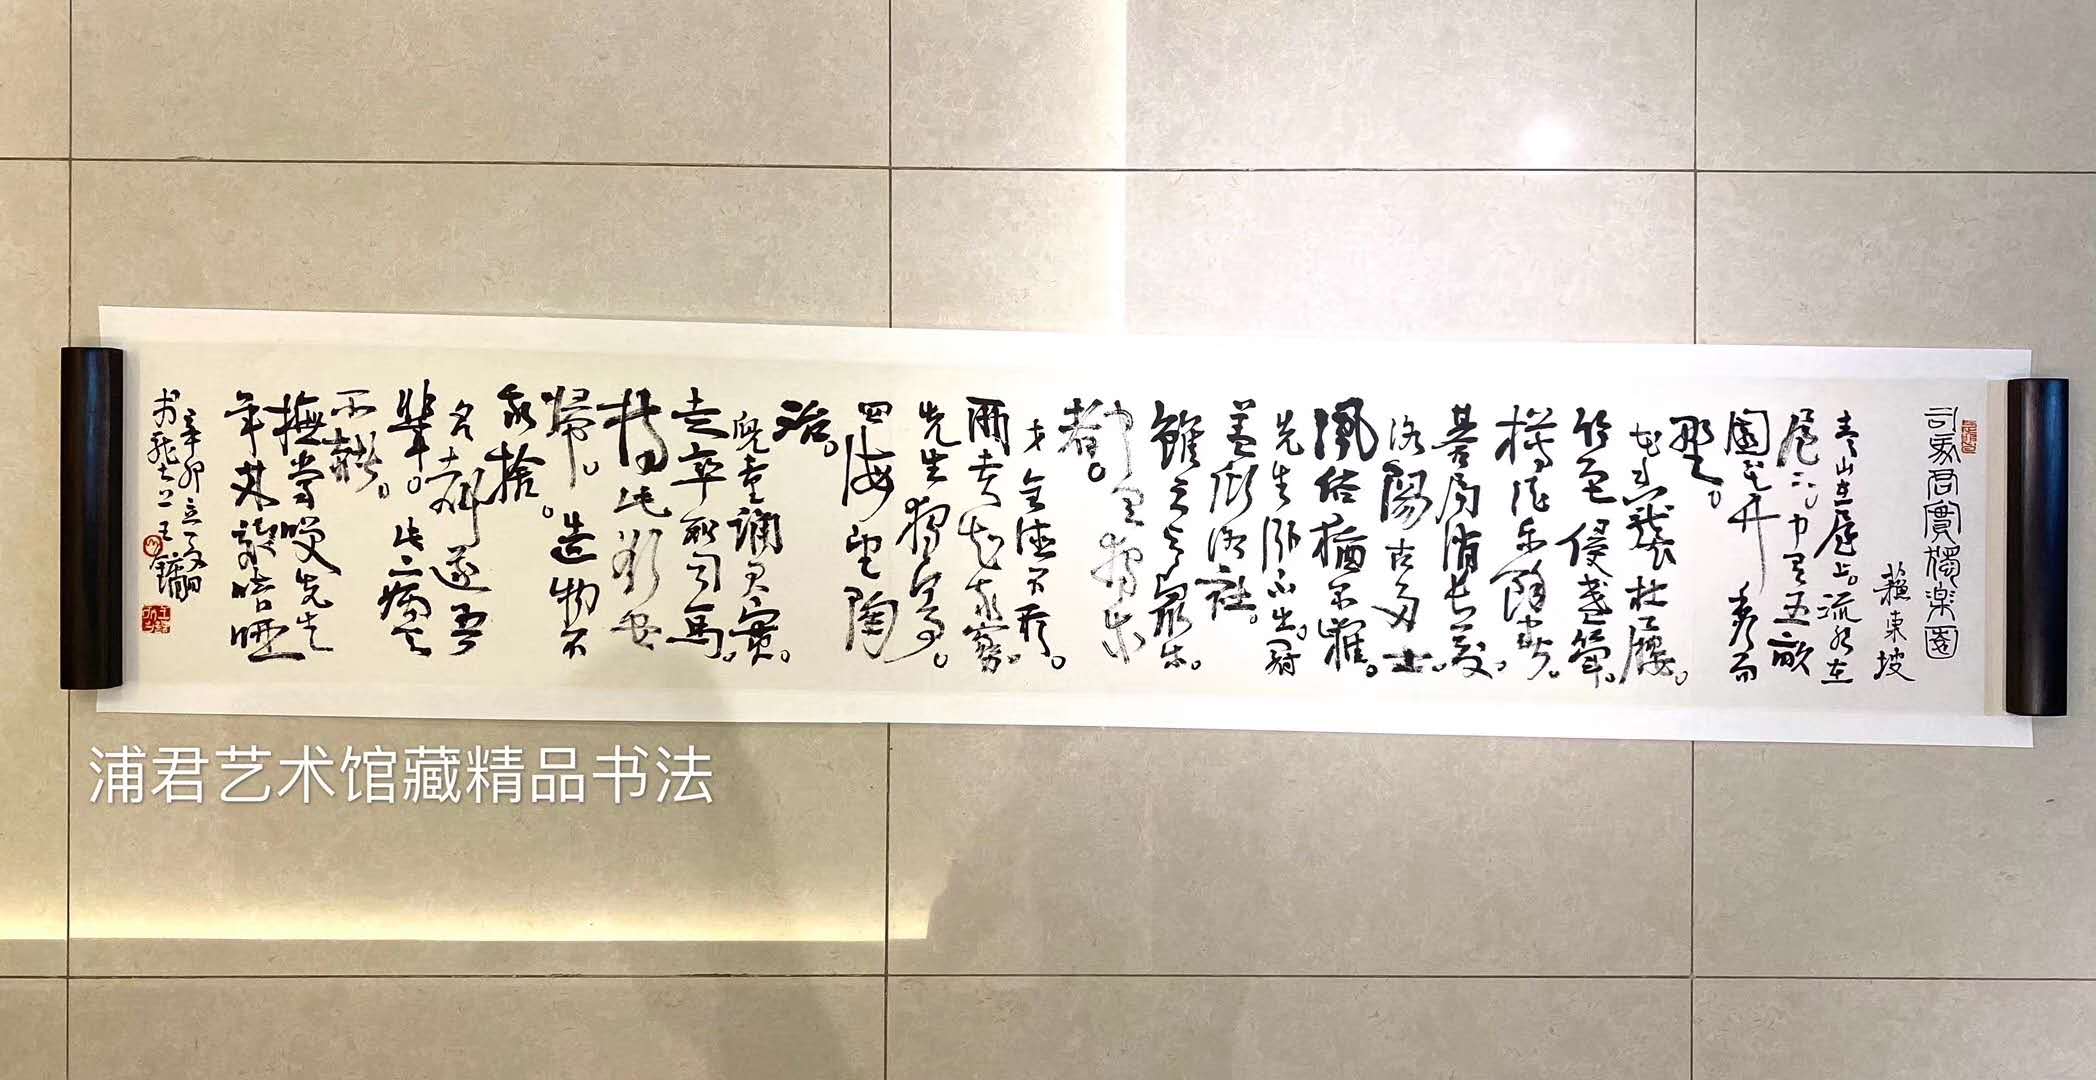 司馬君實獨楽園
蘇東坡
青山在屋上。流水在
屋下。中有五畝
園花竹秀而
野。
花香襲杖屨。
竹色侵盞斝。
樽酒樂餘春。
棊局消長夏。
洛陽古多士。
風俗猶爾雅。
先生卧不出。冠
蓋傾洛社。
雖云與眾樂。
中有獨樂
者。
才全德不形。
所貴知我寡。
先生獨何事。
四海望陶
冶。
兒童誦君實。
走卒知司馬。
持此欲安
歸。造物不
我捨。
名聲逐吾
輩。此病天
所赭。
撫掌笑先生
年來效喑啞
辛卯立夏
王鏞
浦君艺术馆藏精品书法